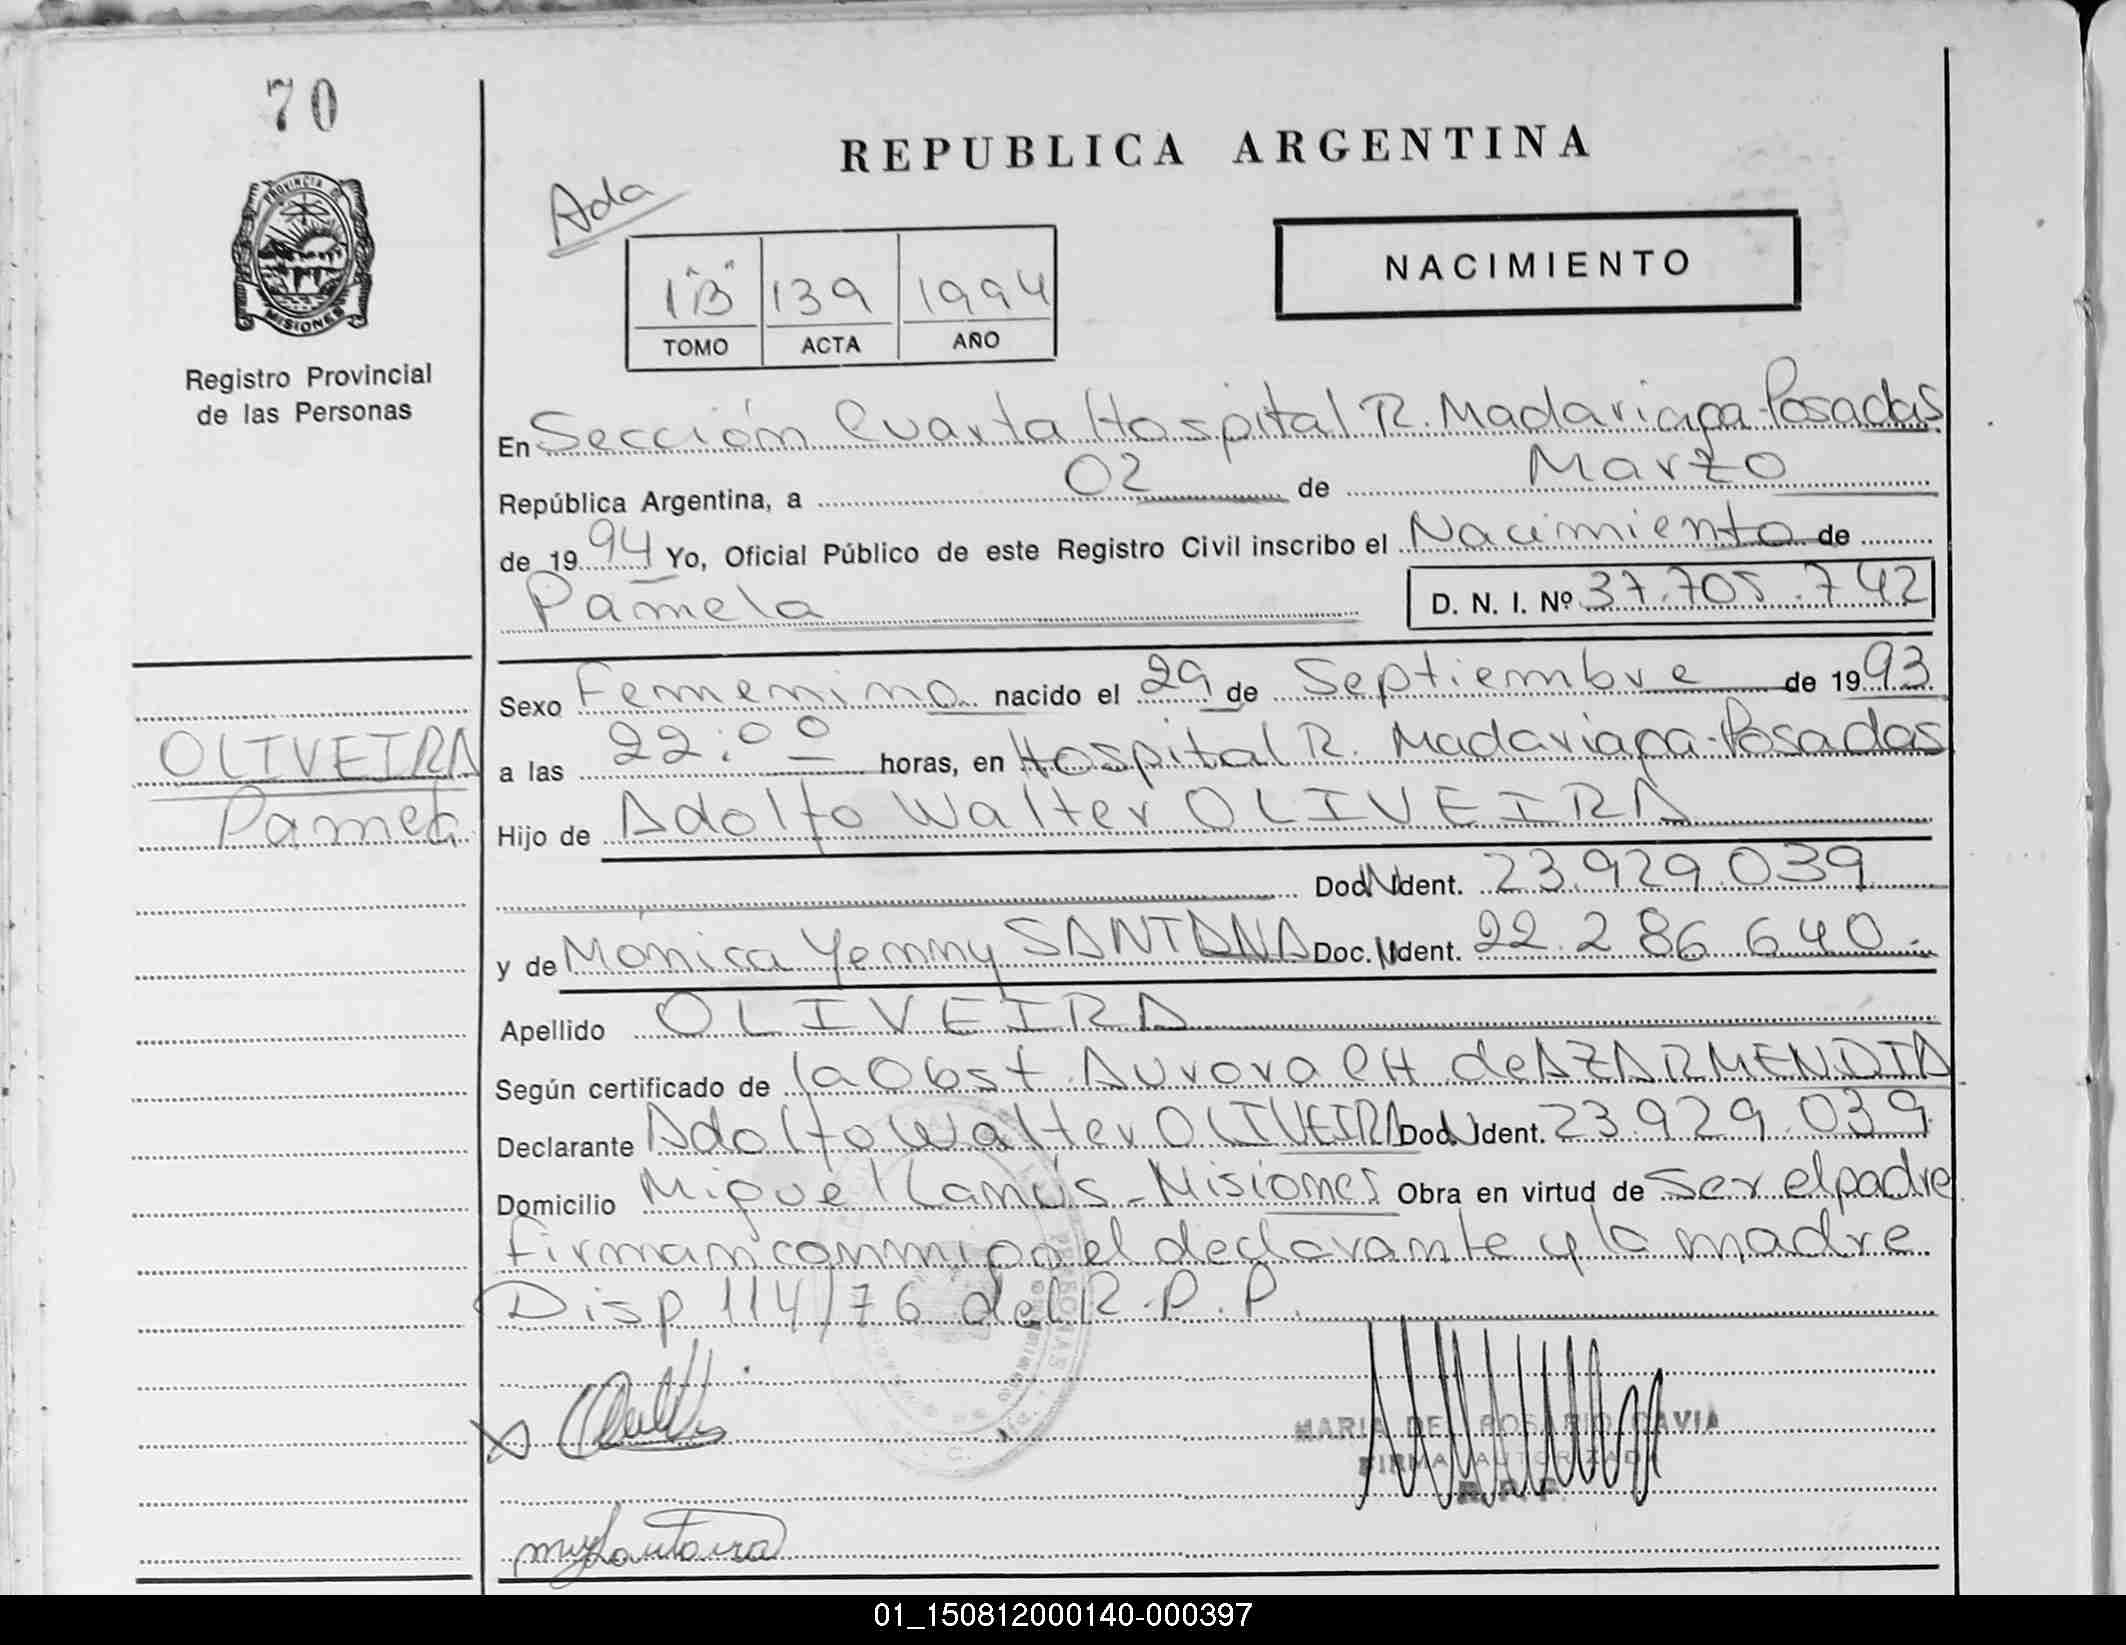 70
REPUBLICA ARGENTINA
Ada
PROVINCIA DE
MISIONES
Registro Provincial
de las Personas
1"B" 139 1994
TOMO ACTA AÑO
NACIMIENTO
En Sección Cuarta Hospital R. Madariaga-Posadas
República Argentina, a 02 de Marzo
de 1994 Yo, Oficial Público de este Registro Civil inscribo el Nacimiento de
Pamela D. N. I. Nº 37.705.742
Sexo Femenino nacido el 29 de Septiembre de 1993
a las 22:00 horas, en Hospital R. Madariaga-Posadas
OLIVEIRA
Pamela
Hijo de Adolfo Walter OLIVEIRA
Doc. N Ident. 23.929.039
y de Monica Yemny SANTANA Doc. N Ident. 22.286.640.-
Apellido OLIVEIRA
Según certificado de la Obst. Aurora CH de AZARMENDIA
Declarante Adolfo Walter OLIVEIRA Doc. N Ident. 23.929.039
Domicilio Miguel Lanús-Misiones Obra en virtud de Ser el padre
firman conmigo el declarante y la madre
Disp 114/76 del R.P.P.
MARIA DEL ROSARIO GAVIA
FIRMA AUTORIZADA
R.P.P.
01_150812000140-000397